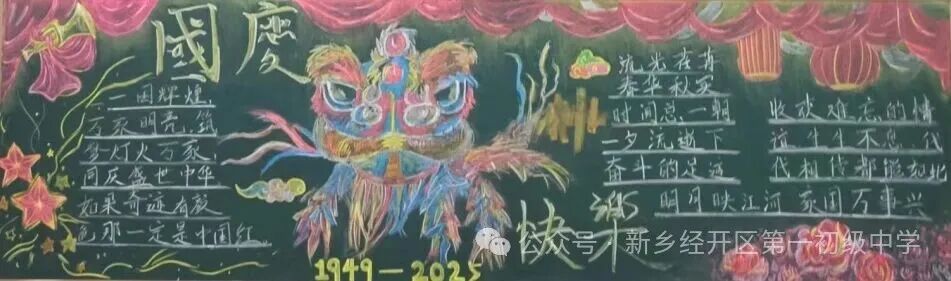 國慶
国辉煌
万家明亮
梦灯火万家
同庆盛世中华
如果奇迹有颜
色那一定是中国红
1949-2025
快乐
流光在苒
春华秋实
时间总一朝
一夕流逝下
奋斗的足迹
收获难忘的情
谊生生不息代
代相传都能如此
明月映江河 家国万事兴
公众号·新乡经开区第一初级中学